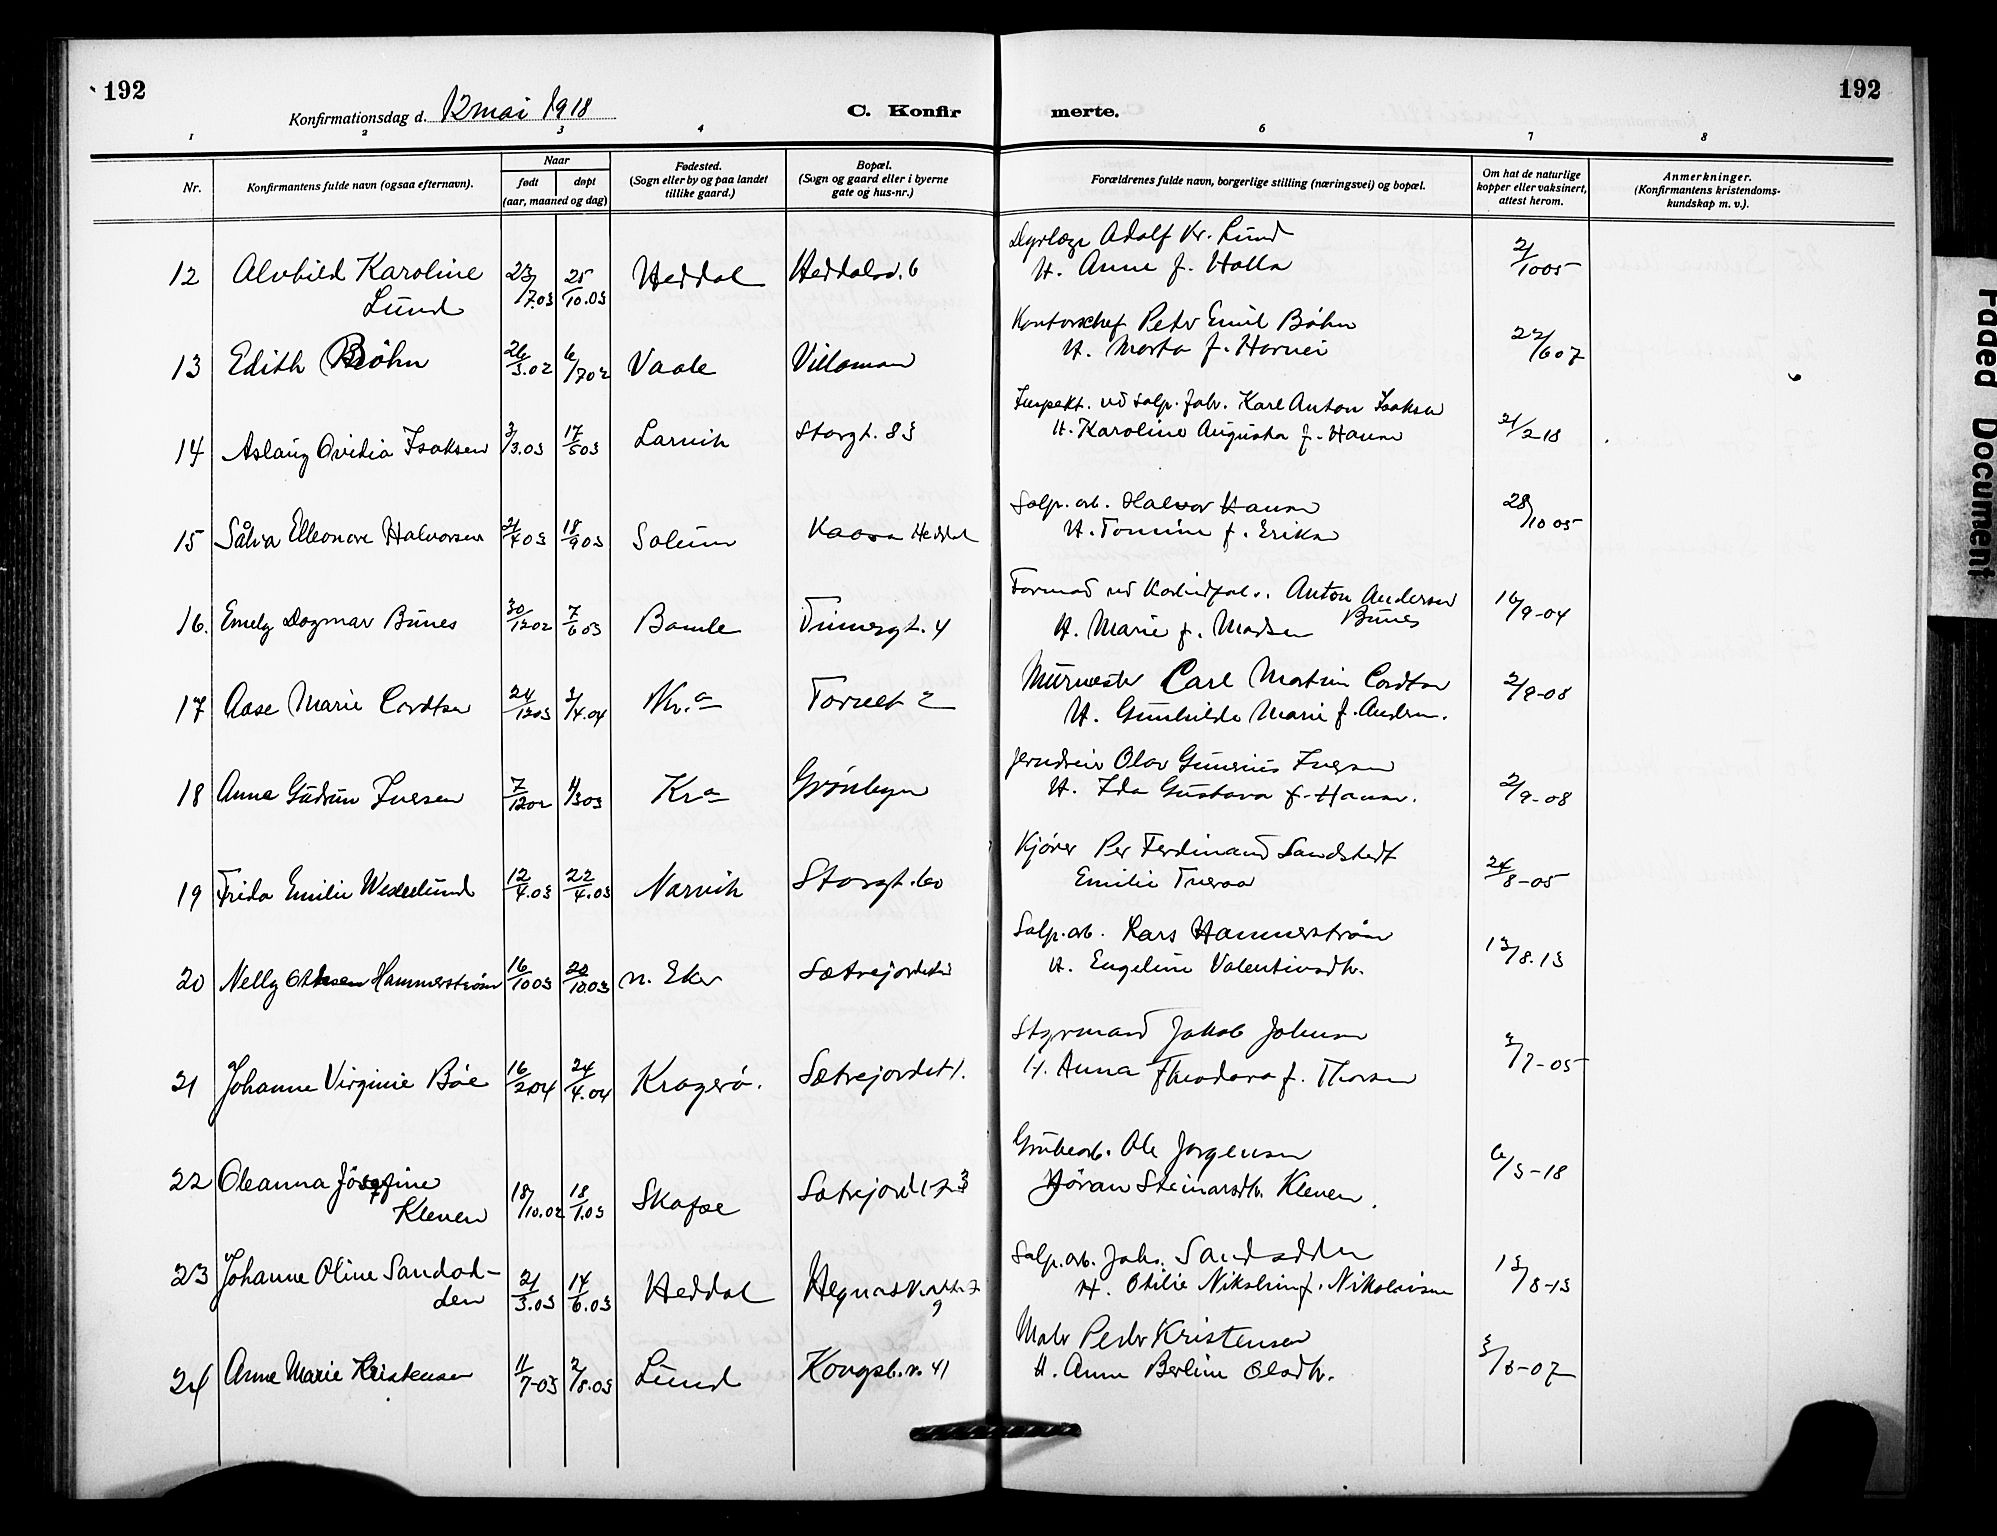 192
192
Konfirmationsdag d. 12 mai 1918
C. Konfir
merte.
1 2 3 4 6 7 8
Nr.
Konfirmantens fulde navn (ogsaa efternavn).
Naar
født
døpt
(aar, maaned og dag)
Fødested.
(Sogn eller by og paa landet
tillike gaard.)
Bopæl.
(Sogn og gaard eller i byerne
gate og hus-nr.)
Forældrenes fulde navn, borgerlige stilling (næringsvei) og bopæl.
Om hat de naturlige
kopper eller vaksinert,
attest herom.
Anmerkninger.
(Konfirmantens kristendoms-
kundskap m. v.).
12 Alvhild Karoline 23/7.03 25/10.03 Heddal Heddalsv. 6
Lund
Dyrlæge Adolf Kr. Lund
H. Anne f. Holla
2/10 05
13 Edith Bøhn 26/3.02 6/7 02 Vaale Villamoen
Kontorschef Peder Emil Bøhn
H. Marta f.
22/6 07
14 Aslaug Ovidia Isaksen 3/3.03 17/5 03 Larvik Storgt. 83
Inspekt. ved salp. fabr. Karl Anton Isaksen
H. Karoline Augusta f. Hansen
21/2 18
15 Sålva Elleonore Halvorsen 21/4 03 18/9 03 Solum Kaasa Heddal
Salp. arb. Halvor Hansen
H. Tomine f. Eriksen
28/10 05
16. Emely Dagmar Bunes 30/12 02 7/6 03 Bamle Tinnegt. 4
Formand ved Anton Andersen
Bunes
H. Marie f. Madsen
16/9-04
17 Aase Marie Cordtsen 24/12 03 3/4.04 Kr.a Torvet 2
Murmester Carl Martin Cordtsen
H. Gunhilda Marie f. Andersen.
2/9-08
18 Anna Gudrun Iversen 7/12 02 1/3 03 Kra Grønbyen
Olav Gunerius Iversen
H. Ida Gustava f. Hansen.
2/9-08
19 Frida Emilie Wederlund 12/4.03 22/4.03 Narvik Storgt. 60
Kjører Per Ferdinand Sandstedt
Emilie
24/8-05
20 Nelly Hammerstrøm 16/10 03 20/10.03 n. Eker Sætrejordet
Salp. arb. Lars Hammerstrøm
H. Engeline Valentinsdtr.
13/8.13
21 Johanne Virginie Bøe 16/2 04 24/4.04 Kragerø. Sætrejordet 1.
Styrmand Jakob Johnsen
H. Anna Theodora f. Thorsen
3/7-05
22 Oleanna Josefine 18/10.02 18/1.03 Skafsø Sætrejordet
Kleven
Grubearb. Ole Jørgensen
Jøran Steinarsdtr. Kleven.
6/3-18
23 Johanne Oline Sandød- 21/3.03 14/6.03 Heddal
den
Salp. arb. Johs. Sandødden
H. Otilie Nikoline f. Nikolaisen
13/8-13
24 Anne Marie Kristensen 11/7-03 2/8.03 Lund Kongsb.v. 41
Maler Peder Kristensen
H. Anne Berline Olsdtr.
3/8-07
Faded Document